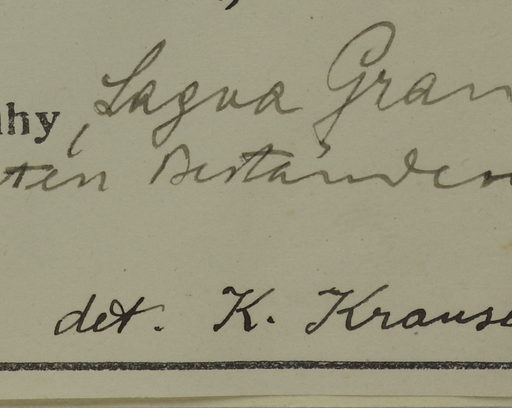 ahy, Lagoa Gran
ten Beständen
det. K. Krause